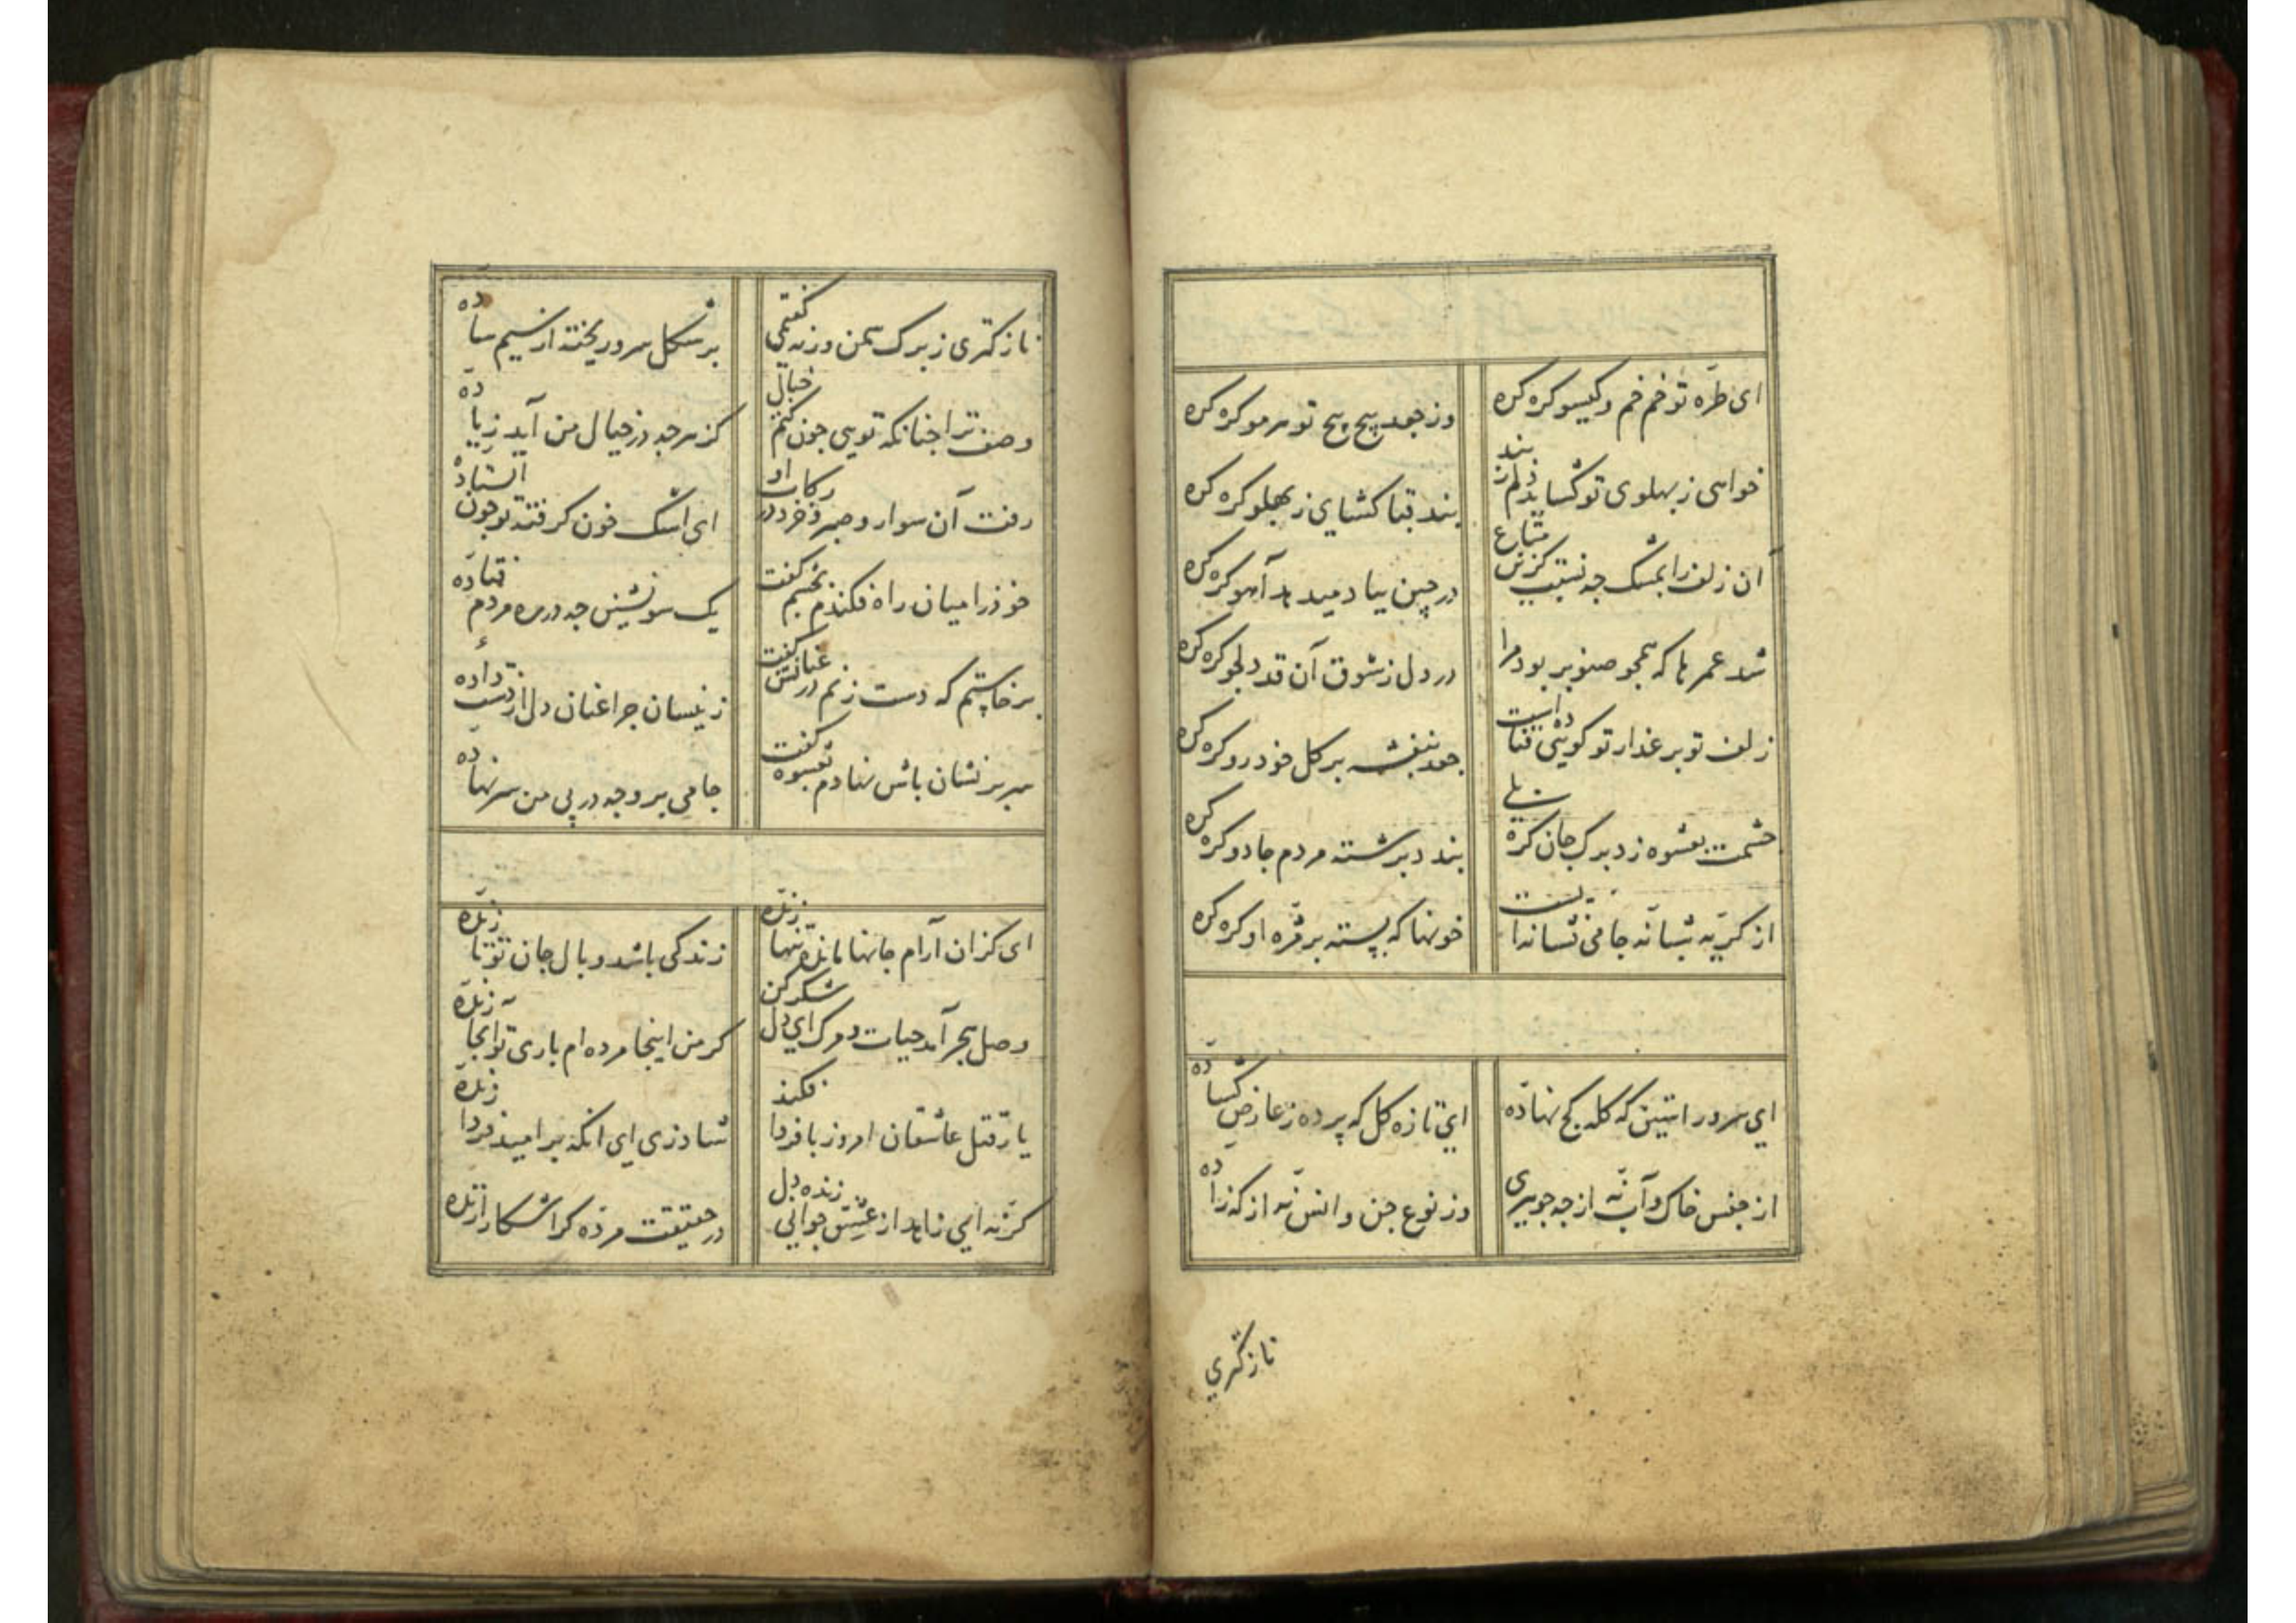 ای طره تو خم خم و کیسو کره کره
وز جعد پیچ پیچ تو هر مو کره کره
خواهی ز پهلوی تو کشاید دلم ز بند
بند قبا کشای ز پهلو کره کره
آن زلف را بمشک چه نسبت کزین متاع
در چین بباد میدهد آهو کره کره
شد عمرها که همچو صنوبر بود مرا
در دل ز شوق آن قد دلجو کره کره
زلف تو بر عذار تو کویی فتاده است
جعد بنفشه بر کل خودرو کره کره
چشمت بعشوه زد برک جان کره بلی
بندد برشته مردم جادو کره کره
از کریه شبانه جامی نشانه ایست
خونها که بسته بر مژه او کره کره
ای سرو راستین که کله کج نهاده
ای تازه کل که پرده ز عارض کشاده
از جنس خاک و آب نه از چه جوهری
وز نوع جن و انس نه از که زاده
نازکتری
نازکتری ز برک سمن ورنه کفتمی
بر شکل سرو ریخته از سیم ساده
وصف ترا چنانکه تویی چون کنم خیال
کز هر چه در خیال من آید زیاده
رفت آن سوار و صبر و خرد در رکاب او
ای اشک خون کرفته تو چون استاده
خود را میان راه فکندم بخشم کفت
یک سو نشین چه در ره مردم فتاده
برخاستم که دست زنم در عنانش کفت
زینسان چرا عنان دل از دست داده
سر بر نشان پاش نهادم بعشوه کفت
جامی برو چه در پی من سر نهاده
ای کزان آرام جانها مانده تنها زنده
زندکی باشد وبال جان تو تا زنده
وصل و هجر آمد حیات و مرک ای دل شکر کن
کر من اینجا مرده ام باری تو آنجا زنده
یار قتل عاشقان امروز با فردا فکند
شاد زی ای آنکه بر امید فردا زنده
کر نه ای زاهد از عشق جوانی زنده دل
در حقیقت مرده کر آشکارا زنده